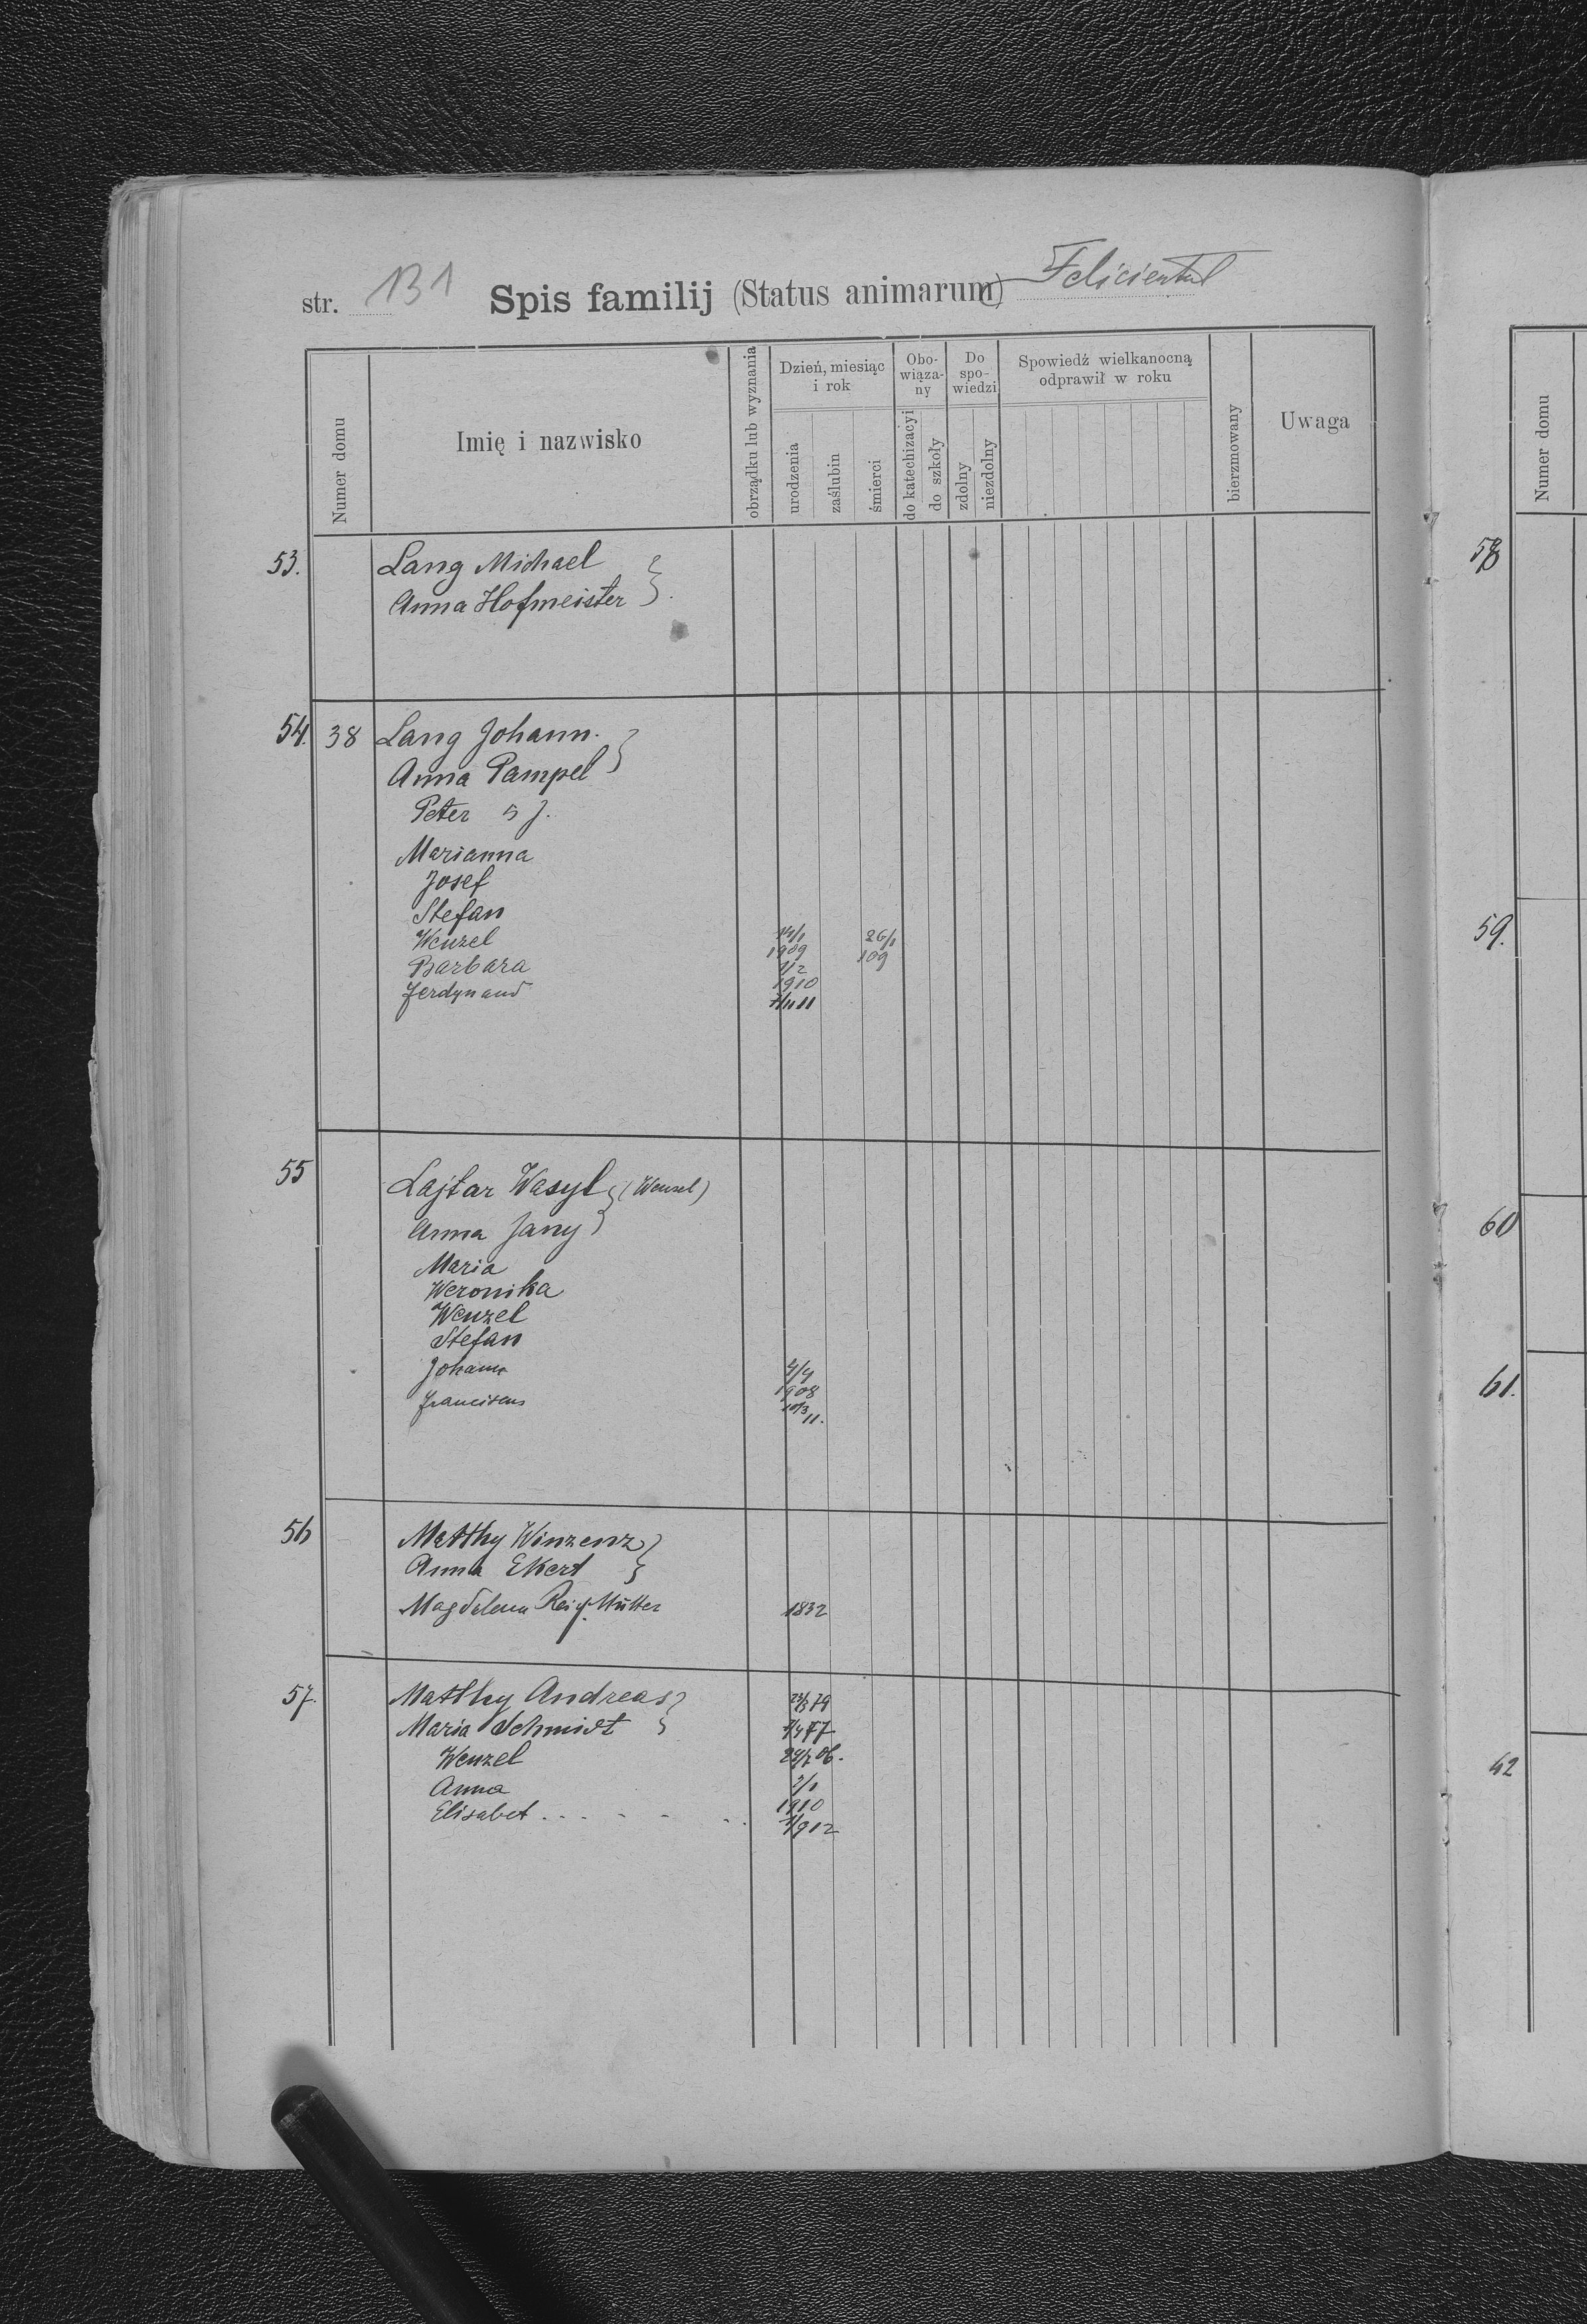 str. 131 Spis familij (Status animarum) Feliciental
Numer domu
Imię i nazwisko
obrządku lub wyznania
Dzień, miesiąc i rok
urodzenia
zaślubin
śmierci
Obowiązany
do katechizacyi
do szkoły
Do spowiedzi
zdolny
niezdolny
Spowiedź wielkanocną odprawił w roku
bierzmowany
Uwaga
Numer domu
53. Lang Michael
Anna Hofmeister
54. 38 Lang Johann.
Anna Pampel
Peter 5 J.
Marianna
Josef
Stefan
Wenzel 14/1 1909 26/1 109
Barbara 1/2 1910
Ferdynand 7/11 11
55 Lajtar Wasyl (Wenzel)
Anna Jany
Maria
Weronika
Wenzel
Stefan
Johann 4/4 1908
Franciscus 10/3 11.
56 Matthy Winzenz
Anna Ekert
Magdalena Mutter 1832
57. Matthy Andreas 23/3 79
Maria Schmidt 7/4 77
Wenzel 24/2 06.
Anna 2/1 1910
Elisabet . . . . . . 1912
58
59.
60
61.
62